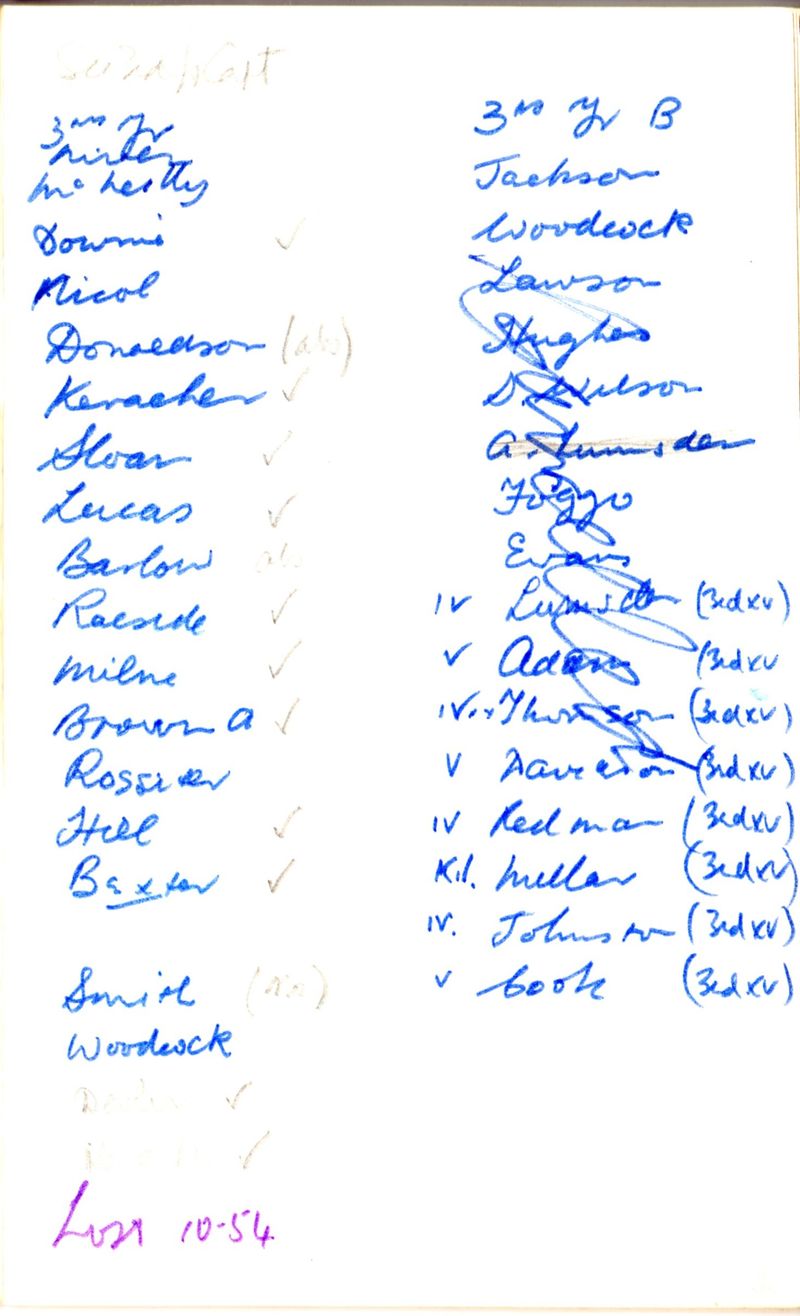 3rd Yr
Downie ✓
Nicol
Donaldson (abs)
Keracher ✓
Sloan ✓
Lucas ✓
Barlow abs
Raeside ✓
Milne ✓
Brown A ✓
Rossiter
Hill ✓
Baxter ✓
Smith (abs)
Woodcock
✓
✓
Lost 10-54
3rd Yr B
Jackson
Woodcock
Lawson
Hughes
D. Wilson
A. Lumsden
Foggo
Evans
IV Lumsden (3rd XV)
V Adam (3rd XV
IV. Thomson (3rd XV)
V (3rd XV)
IV Redman (3rd XV)
K.I. Mellar (3rd XV)
IV. Johnson (3rd XV)
V Cook (3rd XV)